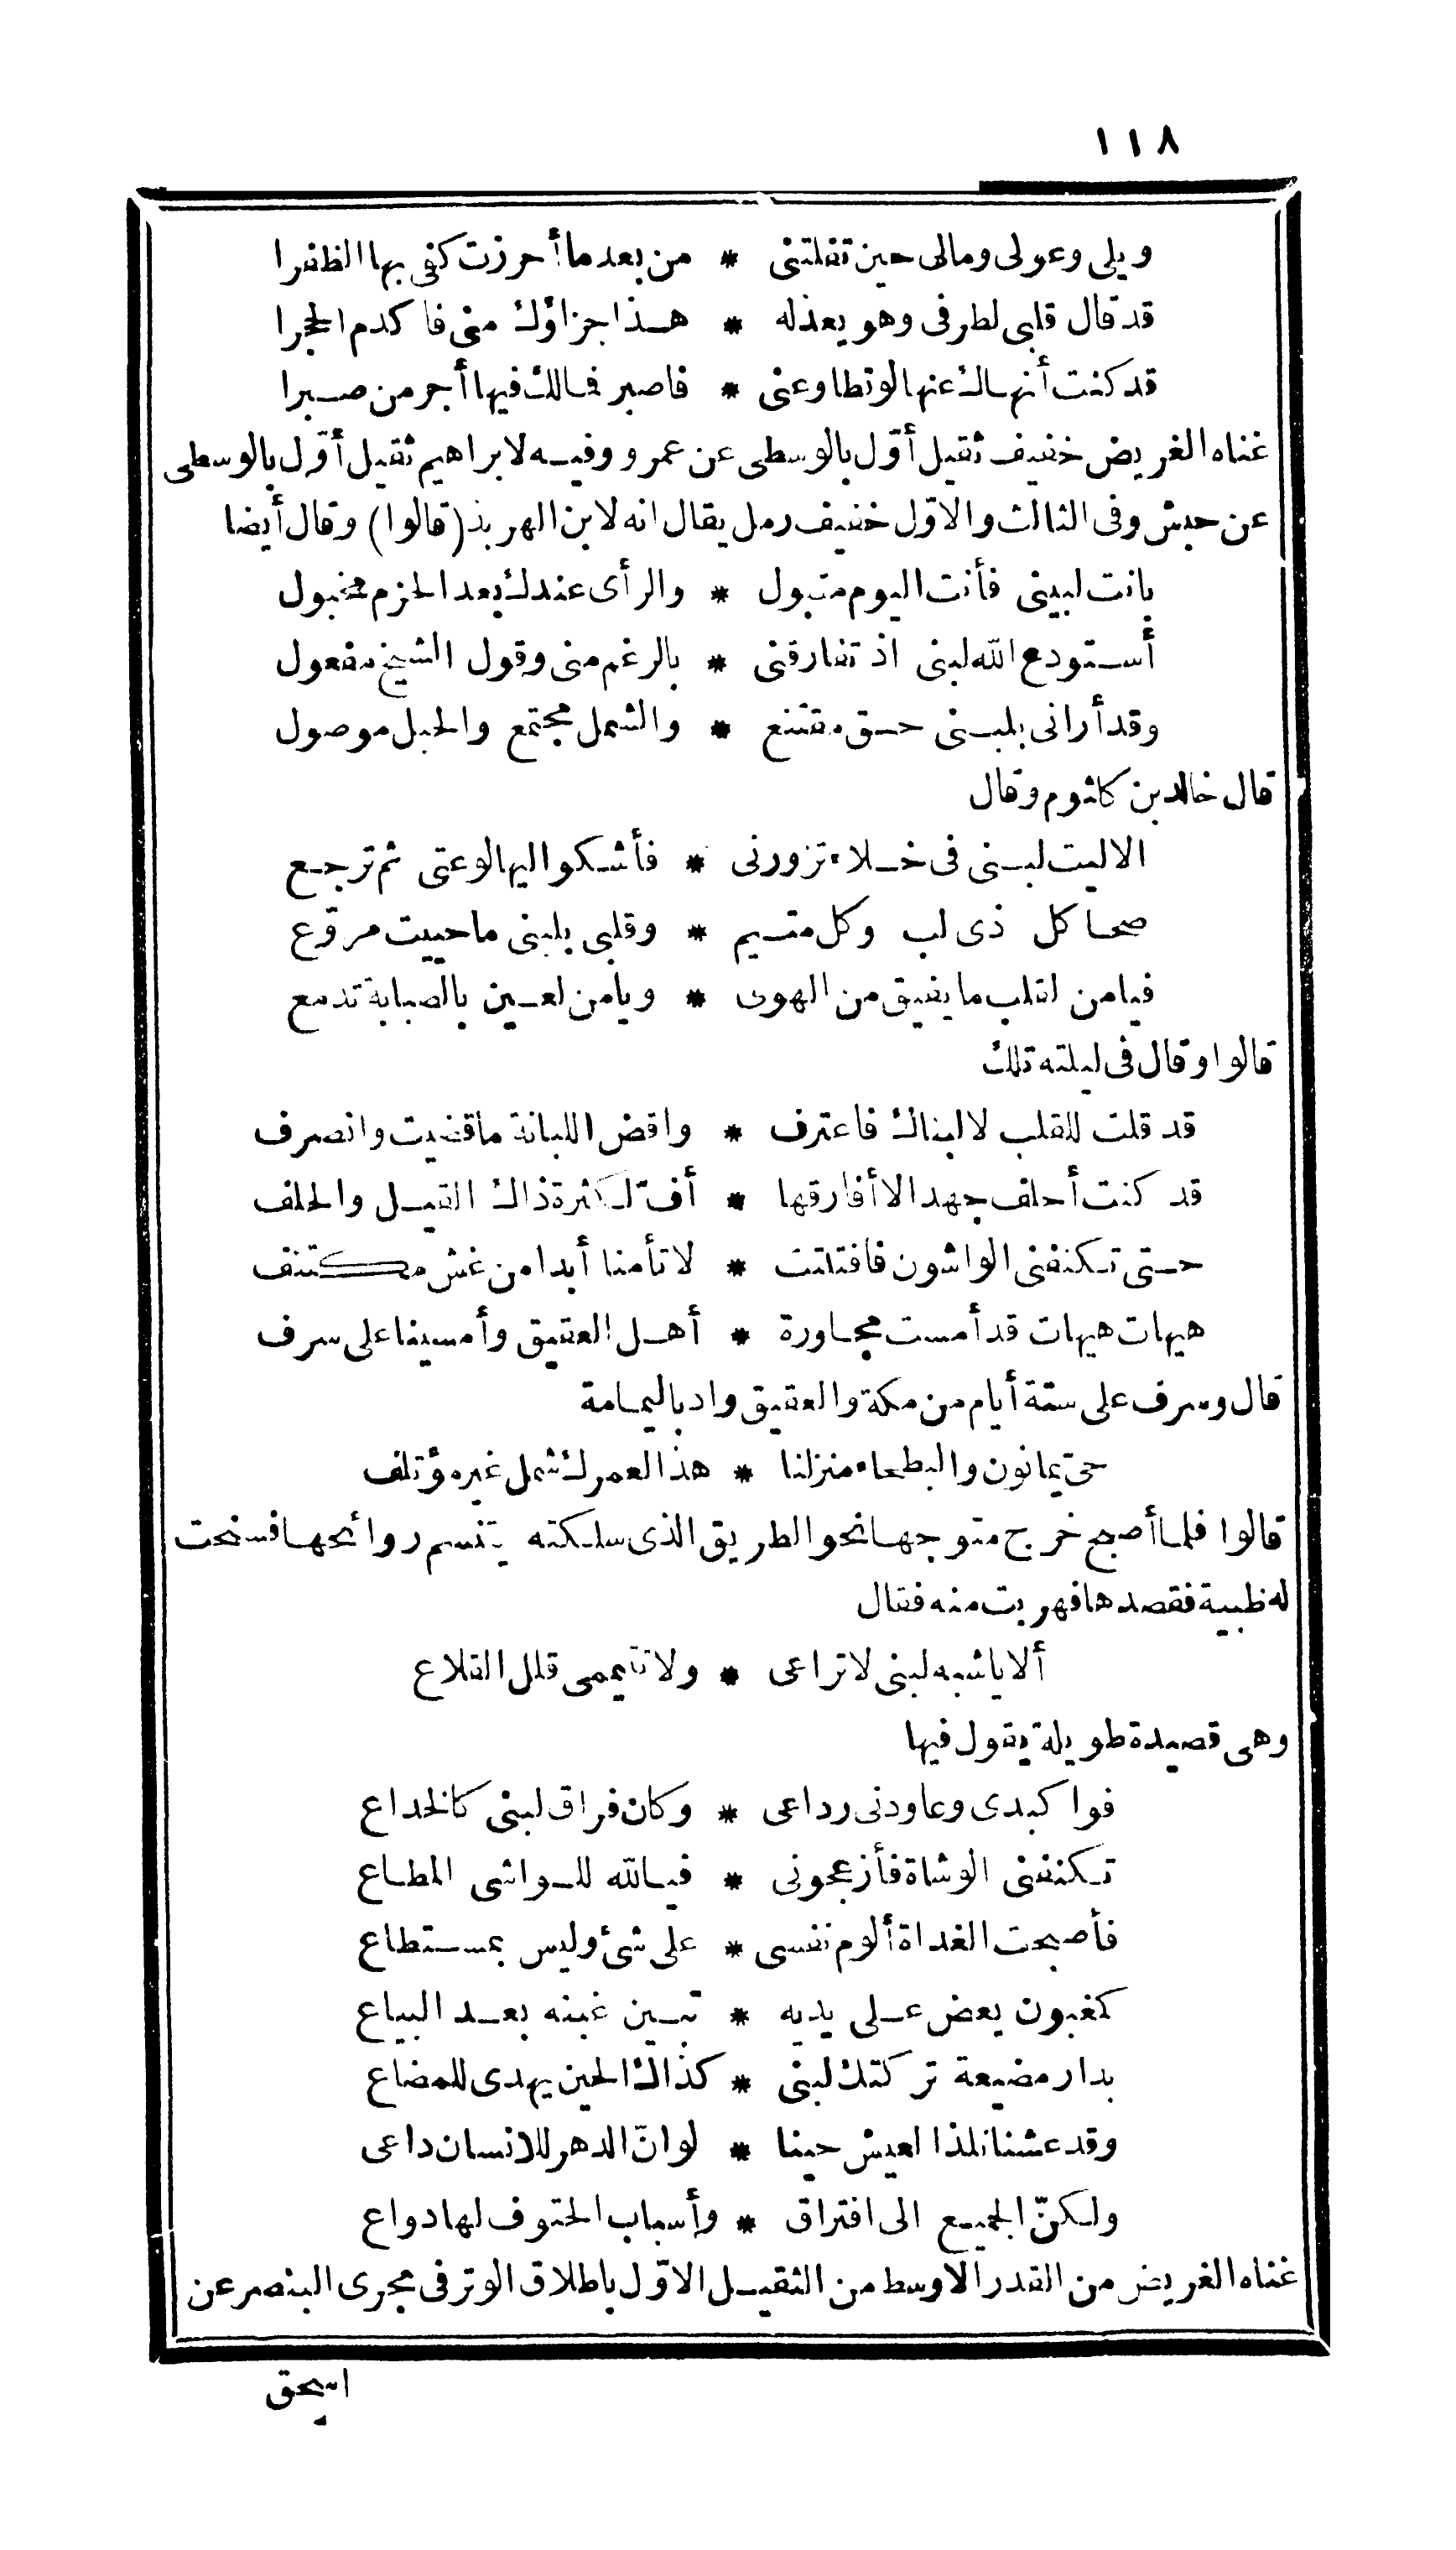 ١١٨
ويلى وعولى ومالى حين تفلتنى * من بعد ما أحرزت كفى بها الظفرا
قد قال قلبى لطرفى وهو يعذله * هذا جزاؤك منى فاكدم الحجرا
قد كنت أنهاك عنها لو تطاوعنى * فاصبر فمالك فيها أجر من صبرا
غناه الغريض خفيف ثقيل أوّل بالوسطى عن عمرو وفيه لابراهيم ثقيل أوّل بالوسطى
عن حبش وفى الثالث والاوّل خفيف رمل يقال انه لابن الهربذ (قالوا) وقال أيضا
بانت لبينى فأنت اليوم متبول * والرأى عندك بعد الحزم مخبول
أستودع الله لبنى اذ تفارقنى * بالرغم منى وقول الشيخ مفعول
وقد أرانى بلبنى حق مقتنع * والشمل مجتمع والحبل موصول
قال خالد بن كاثوم وقال
الا ليت لبنى فى خلاء تزورنى * فأشكو اليها لوعتى ثم ترجع
صحا كل ذى لب وكل متيم * وقلبى بلبنى ما حييت مروّع
فيا من لقلب ما يفيق من الهوى * ويا من لعين بالصبابة تدمع
قالوا وقال فى ليلته تلك
قد قلت للقلب لا لبناك فاعترف * واقض اللبانة ما قضيت وانصرف
قد كنت أحلف جهدا لا أفارقها * أفّ لكثرة ذاك القيل والحلف
حتى تكنفنى الواشون فافتلتت * لا تأمنا أبدا من غش مكتنف
هيهات هيهات قد أمست مجاورة * أهل العقيق وأمسينا على سرف
قال وسرف على ستة أيام من مكة والعقيق واد باليمامة
حىّ يمانون والبطحاء منزلنا * هذا لعمرك شمل غير مؤتلف
قالوا فلما أصبح خرج متوجها نحو الطريق الذى سلكته يتنسم روائحها فسنحت
له ظبية فقصدها فهربت منه فقال
ألا يا شبه لبنى لا تراعى * ولا تتيممى قلل القلاع
وهى قصيدة طويلة يقول فيها
فوا كبدى وعاودنى رداعى * وكان فراق لبنى كالخداع
تكنفنى الوشاة فأزعجونى * فيالله للواشى المطاع
فأصبحت الغداة ألوم نفسى * على شئ وليس بمستطاع
كمغبون يعض على يديه * تبين غبنه بعد البياع
بدار مضيعة تركتك لبنى * كذاك الحين يهدى للمضاع
وقد عشنا نلذا لعيش حينا * لو انّ الدهر للانسان داعى
ولكنّ الجميع الى افتراق * وأسباب الحتوف لها دواع
غناه الغريض من القدر الاوسط من الثقيل الاوّل باطلاق الوتر فى مجرى البنصر عن
اسحق